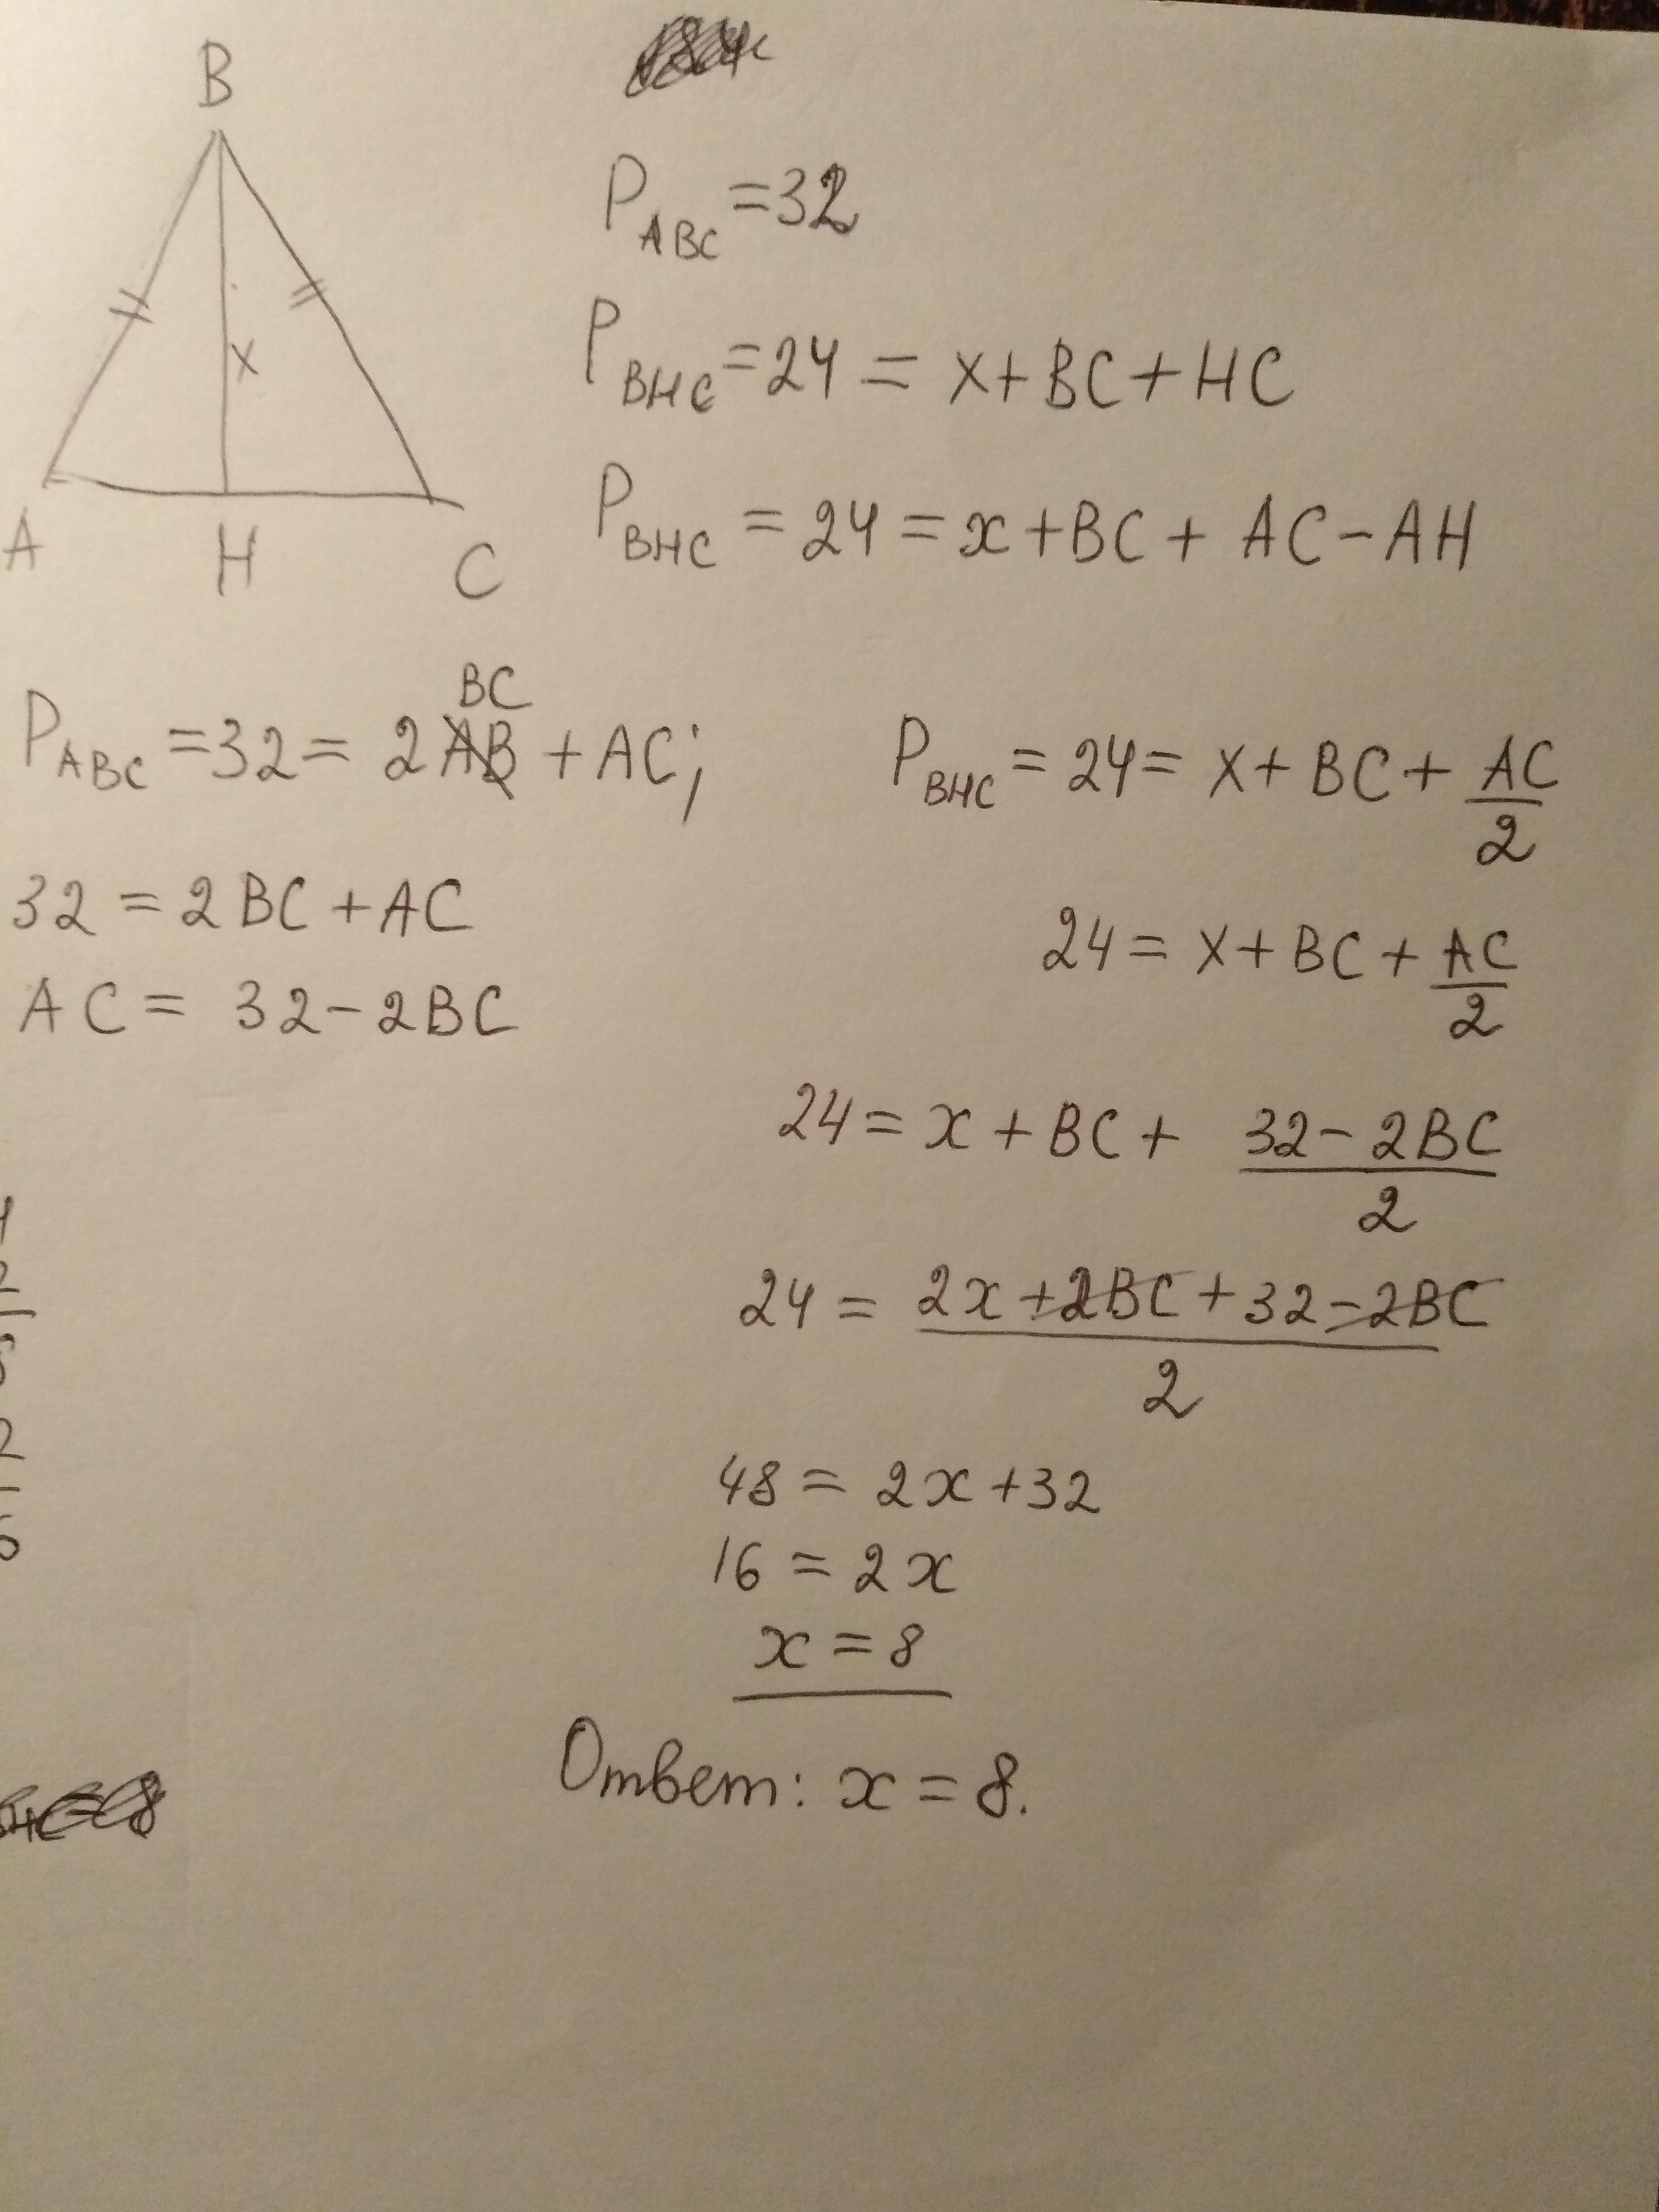 B
x
A H C
P_ABC = 32
P_BHC = 24 = x + BC + HC
P_BHC = 24 = x + BC + AC - AH
BC
P_ABC = 32 = 2AB + AC;
P_BHC = 24 = x + BC + AC/2
32 = 2BC + AC
24 = x + BC + AC/2
AC = 32 - 2BC
24 = x + BC + (32 - 2BC)/2
24 = (2x + 2BC + 32 - 2BC)/2
48 = 2x + 32
16 = 2x
x = 8
Ответ: x = 8.